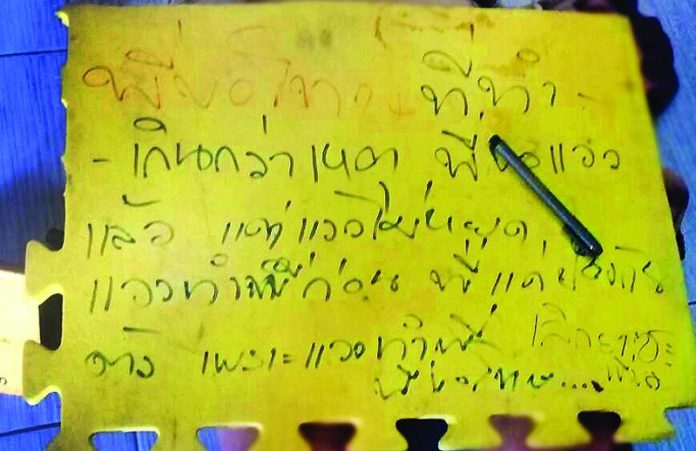 พี่ขอโทษ ที่ทำ
- เกินกว่าเหตุ พี่ขอแวว
แล้ว แต่แววไม่หยุด
แววทำพี่ก่อน พี่แค่ป้องกัน
ตัว เพราะแววทำพี่
พี่ขอโทษ....